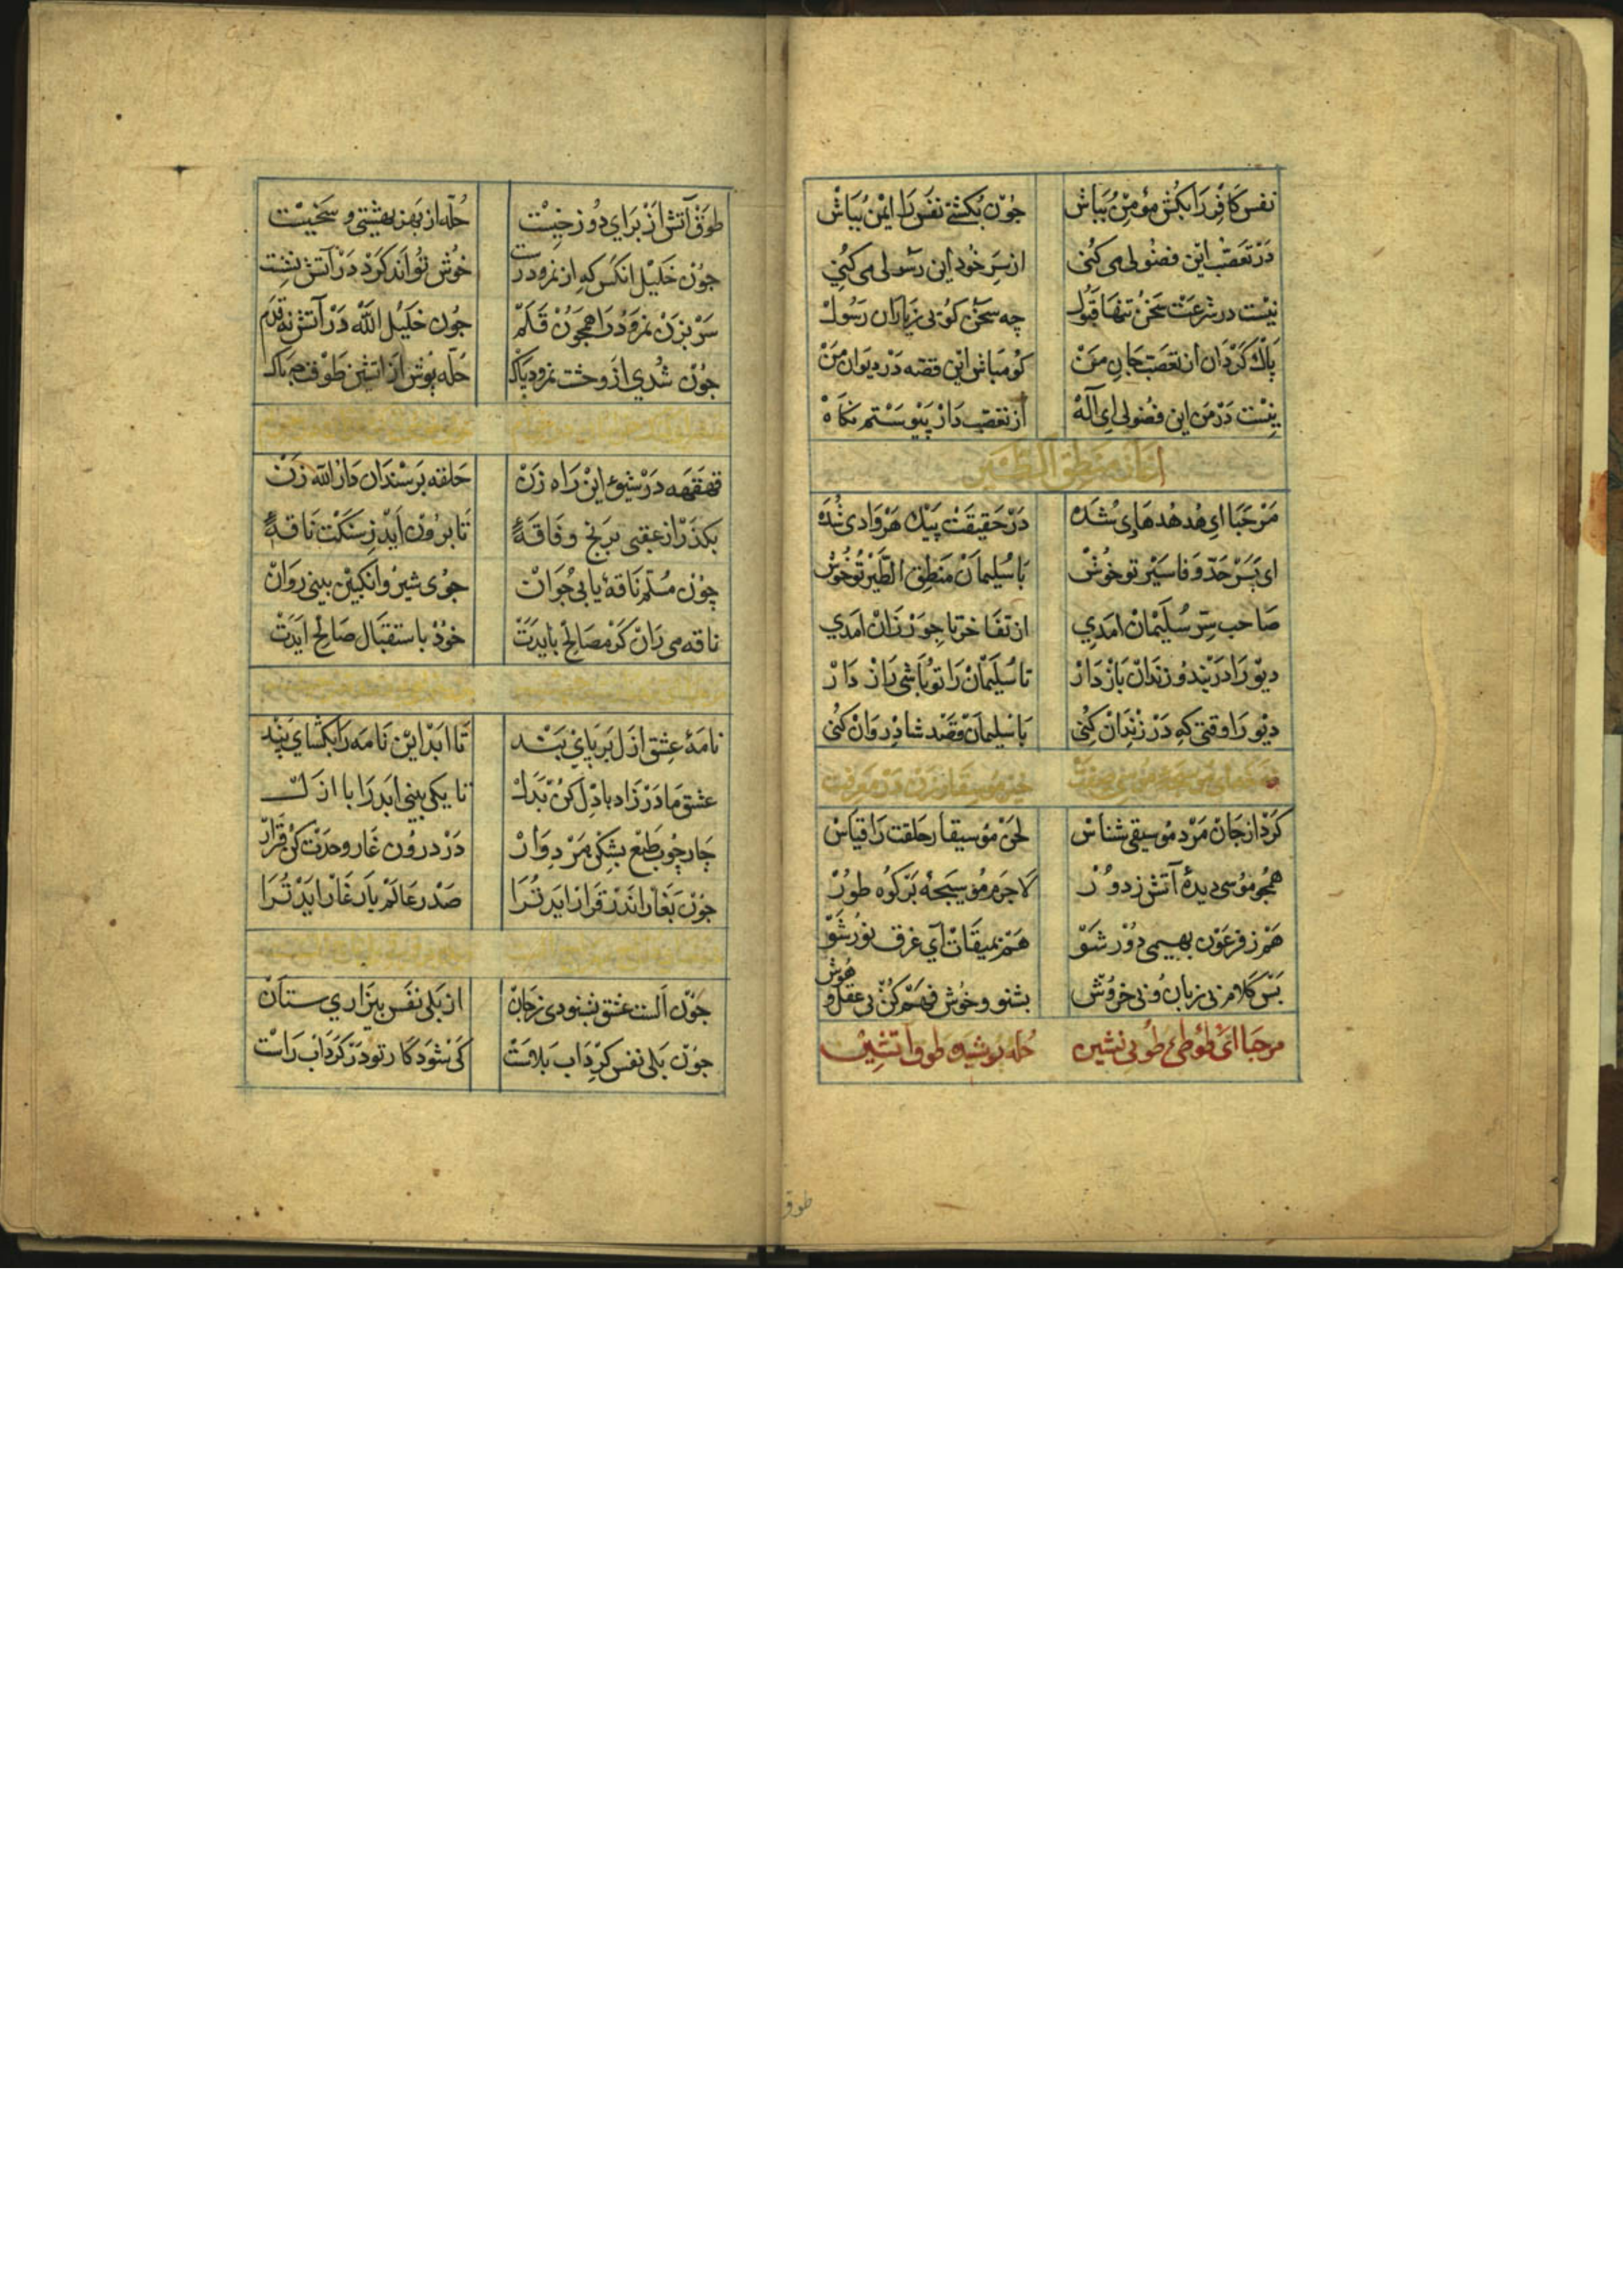 نفس کافر را بکش مؤمن بباش جون بکشتی نفس را ایمن بباش
در تعصب این فضولی می کنی از سر خود این رسولی می کنی
نیست در شرعت سخن تنها قبول چه سخن کوئی زیاران رسول
پاک کردان از تعصب جان من کو مباش این قصه در دیوان من
نیست در من این فضولی ای اله از تعصب دار پیوستم نکاه
اغاز منطق الطیر
مرحبا ای هدهد هادی شده در حقیقت پیک هر وادی شده
ای بسر حد وفا سیر تو خوش با سلیمان منطق الطیر تو خوش
صاحب سر سلیمان امدی از تفاخر تاجور زان امدی
دیو را در بند و زندان باز دار تا سلیمان را تو باشی راز دار
دیو را وقتی که در زندان کنی با سلیمان قصد شادروان کنی
خیز موسیقار زن در معرفت
کرد از جان مرد موسیقی شناس لحن موسیقار خلقت را قیاس
همجو موسی دیدهٔ آتش ز دور لاجرم موسیجهٔ بر کوه طور
هم ز فرعون بهیمی دور شو هم بمیقات آی غرق نور شو
بس کلام بی زبان و بی خروش بشنو و خوش فهم کن بی عقل و هوش
مرحبا ای طوطی طوبی نشین حله پوشیده طوق آتشین
طوق
طوق آتش از برای دوزخیست حله از بهر بهشتی و سخیست
جون خلیل انکس که از نمرود رست خوش تواند کرد در آتش نشست
سر بزن نمرود را همجون قلم جون خلیل الله در آتش نه قدم
جون شدی از وحشت نمرود پاک حله پوش از اتشین طوقت جه باک
قهقهه در شیوهٔ این راه زن حلقه بر سندان دار الله زن
بکذر از عقبی برنج و فاقهٔ تا برون اید ز سنکت ناقهٔ
چون مسلم ناقهٔ یابی جوان جوی شیر و انکبین بینی روان
ناقه می ران کر مصالح بایدت خود باستقبال صالح ایدت
نامهٔ عشق ازل بر پای بند تا ابد این نامه را بکشای بند
عشق مادرزاد با دل کن بدل تا یکی بینی ابد را با ازل
چار چوب طبع بشکن مرد وار در درون غار وحدت کن قرار
جون بغار اندر قرار اید ترا صدر عالم یار غار اید ترا
جون الست عشق بشنودی زجان از بلی نفس بیزاری ستان
جون بلی نفس کرداب بلاست کی شود کار تو در کرداب راست